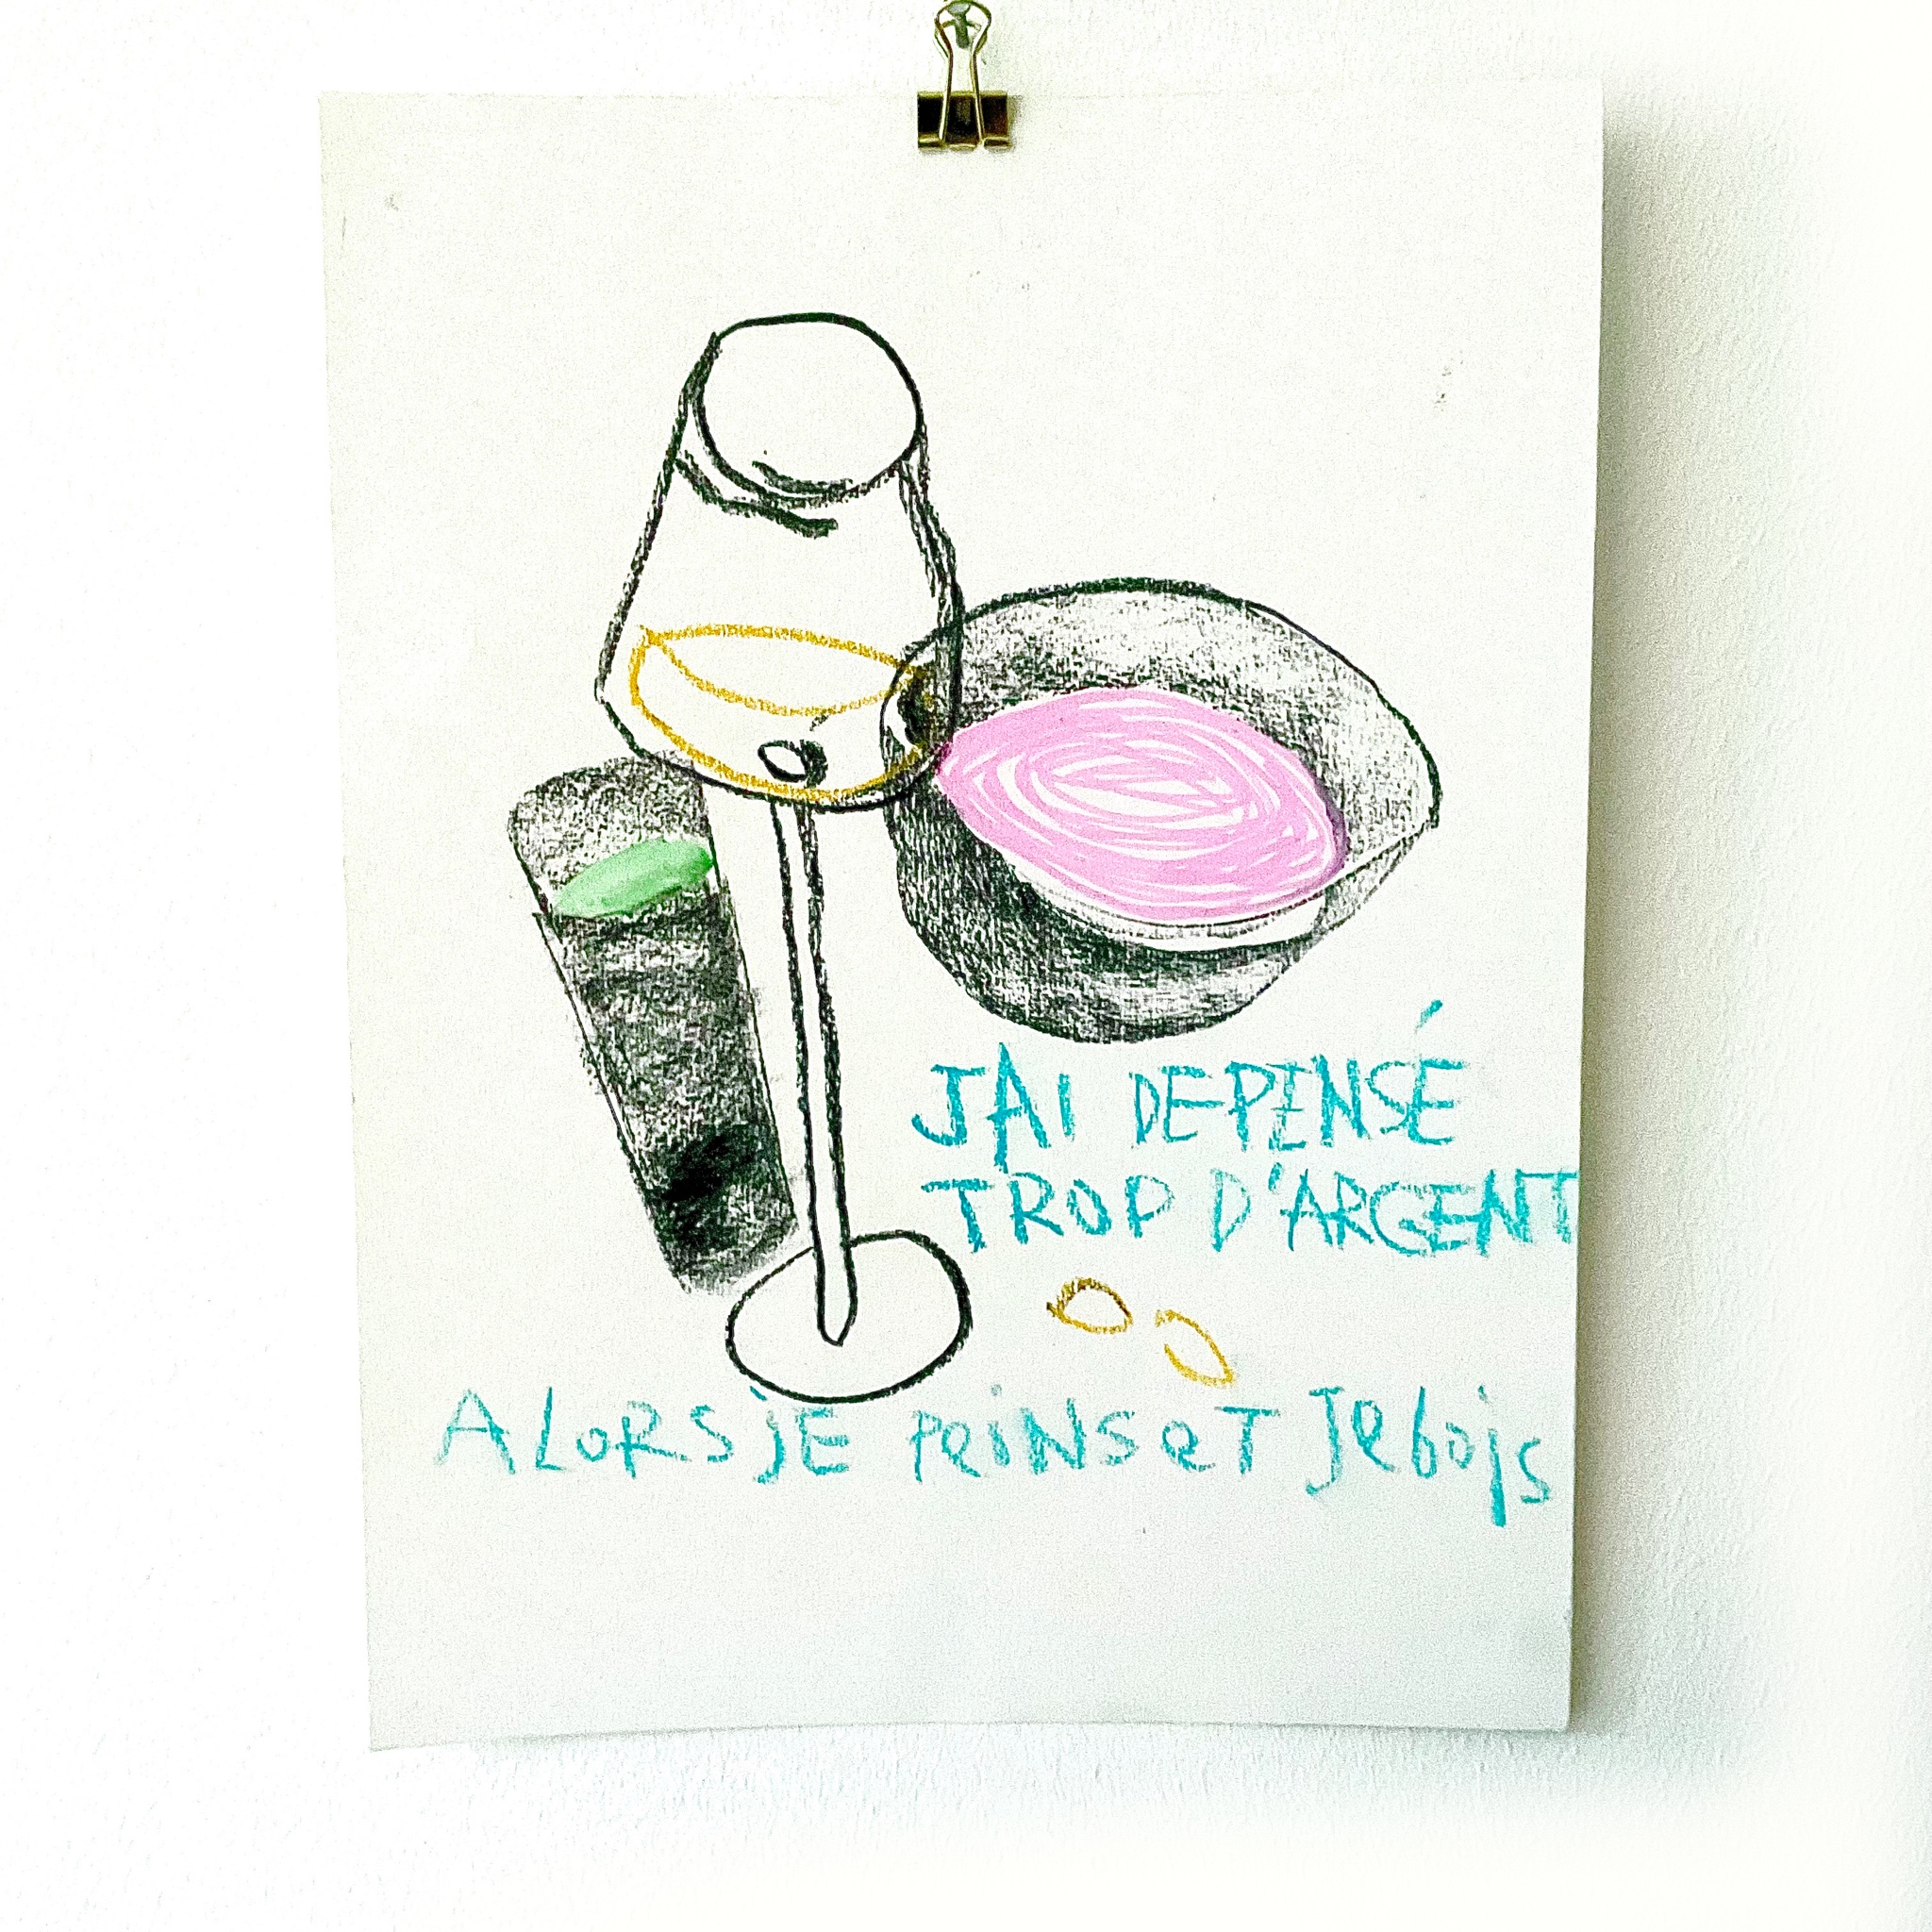 JAI DEPENSÉ
TROP D'ARGENT
ALORS JE PeiNS eT Jebois